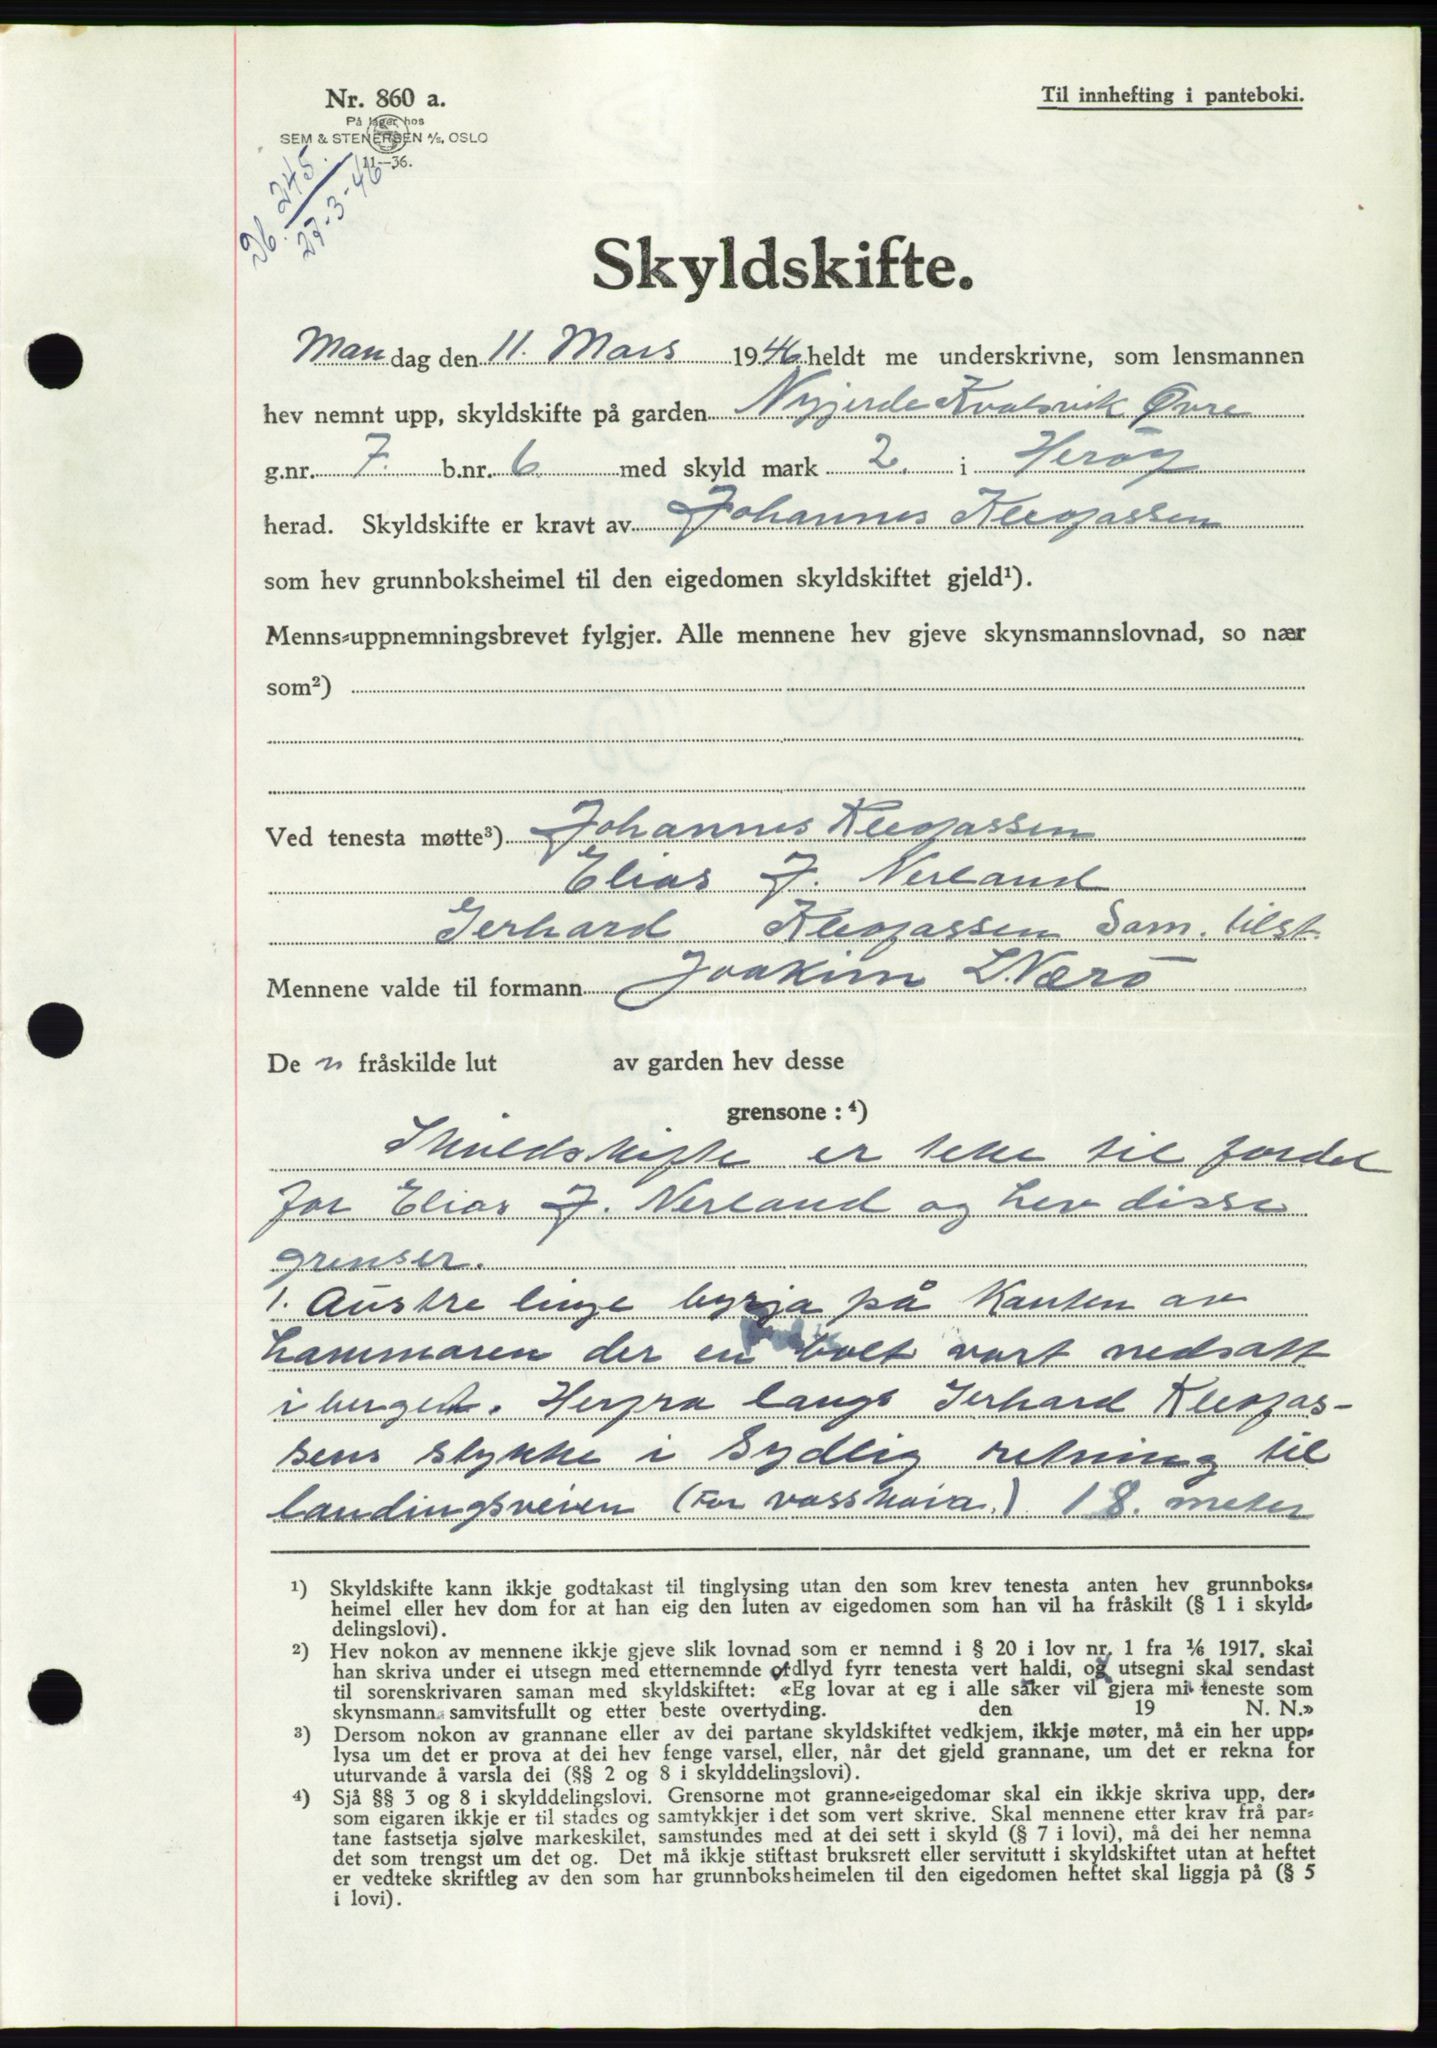 Nr. 860 a.
På lager hos
SEM & STENERSEN A/S, OSLO
11--36.
Til innhefting i panteboki.
26. 245.
27-3-46
Skyldskifte.
Mandag den 11. Mars 1946 heldt me underskrivne, som lensmannen
hev nemnt upp, skyldskifte på garden Nygjerde Kvalsvik Øvre
g.nr. 7. b.nr. 6 med skyld mark 2. i Herøy
herad. Skyldskifte er kravt av Johannes Kleofassen
som hev grunnboksheimel til den eigedomen skyldskiftet gjeld¹).
Menns-uppnemningsbrevet fylgjer. Alle mennene hev gjeve skynsmannslovnad, so nær
som²)
Ved tenesta møtte³) Johannes Kleofassen
Elias J. Nerland
Gerhard Kleofassen Sam. tilst.
Mennene valde til formann Joakim L. Nærö
De n fråskilde lut av garden hev desse
grensone: ⁴)
Skuldskifte er teke til fordel
for Elias J. Nerland og hev disse
grenser.
1. Austre linje byrja på Kanten av
hammaren der en bolt vart nedsatt
i berget. Herfra langs Gerhard Kleofas-
sens stykke i Sydlig retning til
landingsveien (For vasskøira.) 18. meter
¹) Skyldskifte kann ikkje godtakast til tinglysing utan den som krev tenesta anten hev grunnboks-
heimel eller hev dom for at han eig den luten av eigedomen som han vil ha fråskilt (§ 1 i skyld-
delingslovi).
²) Hev nokon av mennene ikkje gjeve slik lovnad som er nemnd i § 20 i lov nr. 1 fra 1/6 1917, skal
han skriva under ei utsegn med etternemnde ordlyd fyrr tenesta vert haldi, og utsegni skal sendast
til sorenskrivaren saman med skyldskiftet: «Eg lovar at eg i alle saker vil gjera mi teneste som
skynsmann samvitsfullt og etter beste overtyding. den 19 N. N.»
³) Dersom nokon av grannane eller av dei partane skyldskiftet vedkjem, ikkje møter, må ein her upp-
lysa um det er prova at dei hev fenge varsel, eller, når det gjeld grannane, um det er rekna for
uturvande å varsla dei (§§ 2 og 8 i skylddelingslovi).
⁴) Sjå §§ 3 og 8 i skylddelingslovi. Grensorne mot granne-eigedomar skal ein ikkje skriva upp, der-
som eigaren ikkje er til stades og samtykkjer i det som vert skrive. Skal mennene etter krav frå par-
tane fastsetja sjølve markeskilet, samstundes med at dei sett i skyld (§ 7 i lovi), må dei her nemna
det som trengst um det og. Det må ikkje stiftast bruksrett eller servitutt i skyldskiftet utan at heftet
er vedteke skriftleg av den som har grunnboksheimelen til den eigedomen heftet skal liggja på (§ 5
i lovi).